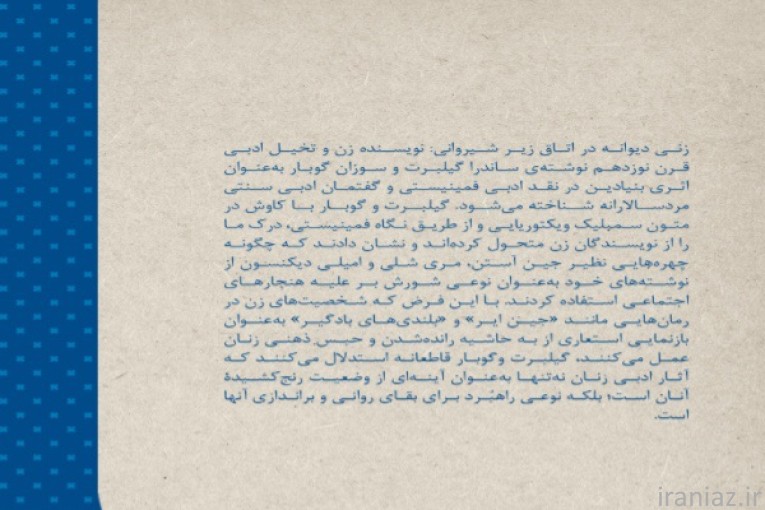 زنی دیوانه در اتاق زیر شیروانی: نویسنده زن و تخیل ادبی
قرن نوزدهم نوشته‌ی ساندرا گیلبرت و سوزان گوبار به‌عنوان
اثری بنیادین در نقد ادبی فمینیستی و گفتمان ادبی سنتی
مردسالارانه شناخته می‌شود. گیلبرت و گوبار با کاوش در
متون سمبلیک ویکتوریایی و از طریق نگاه فمینیستی، درک ما
را از نویسندگان زن متحول کرده‌اند و نشان دادند که چگونه
چهره‌هایی نظیر جین آستن، مری شلی و امیلی دیکنسون از
نوشته‌های خود به‌عنوان نوعی شورش بر علیه هنجارهای
اجتماعی استفاده کردند. با این فرض که شخصیت‌های زن در
رمان‌هایی مانند «جین ایر» و «بلندی‌های بادگیر» به‌عنوان
بازنمایی استعاری از به حاشیه رانده‌شدن و حبس ذهنی زنان
عمل می‌کنند، گیلبرت وگوبار قاطعانه استدلال می‌کنند که
آثار ادبی زنان نه‌تنها به‌عنوان آینه‌ای از وضعیت رنج‌کشیدهٔ
آنان است؛ بلکه نوعی راهبُرد برای بقای روانی و براندازی آنها
است.
iraniaz.ir